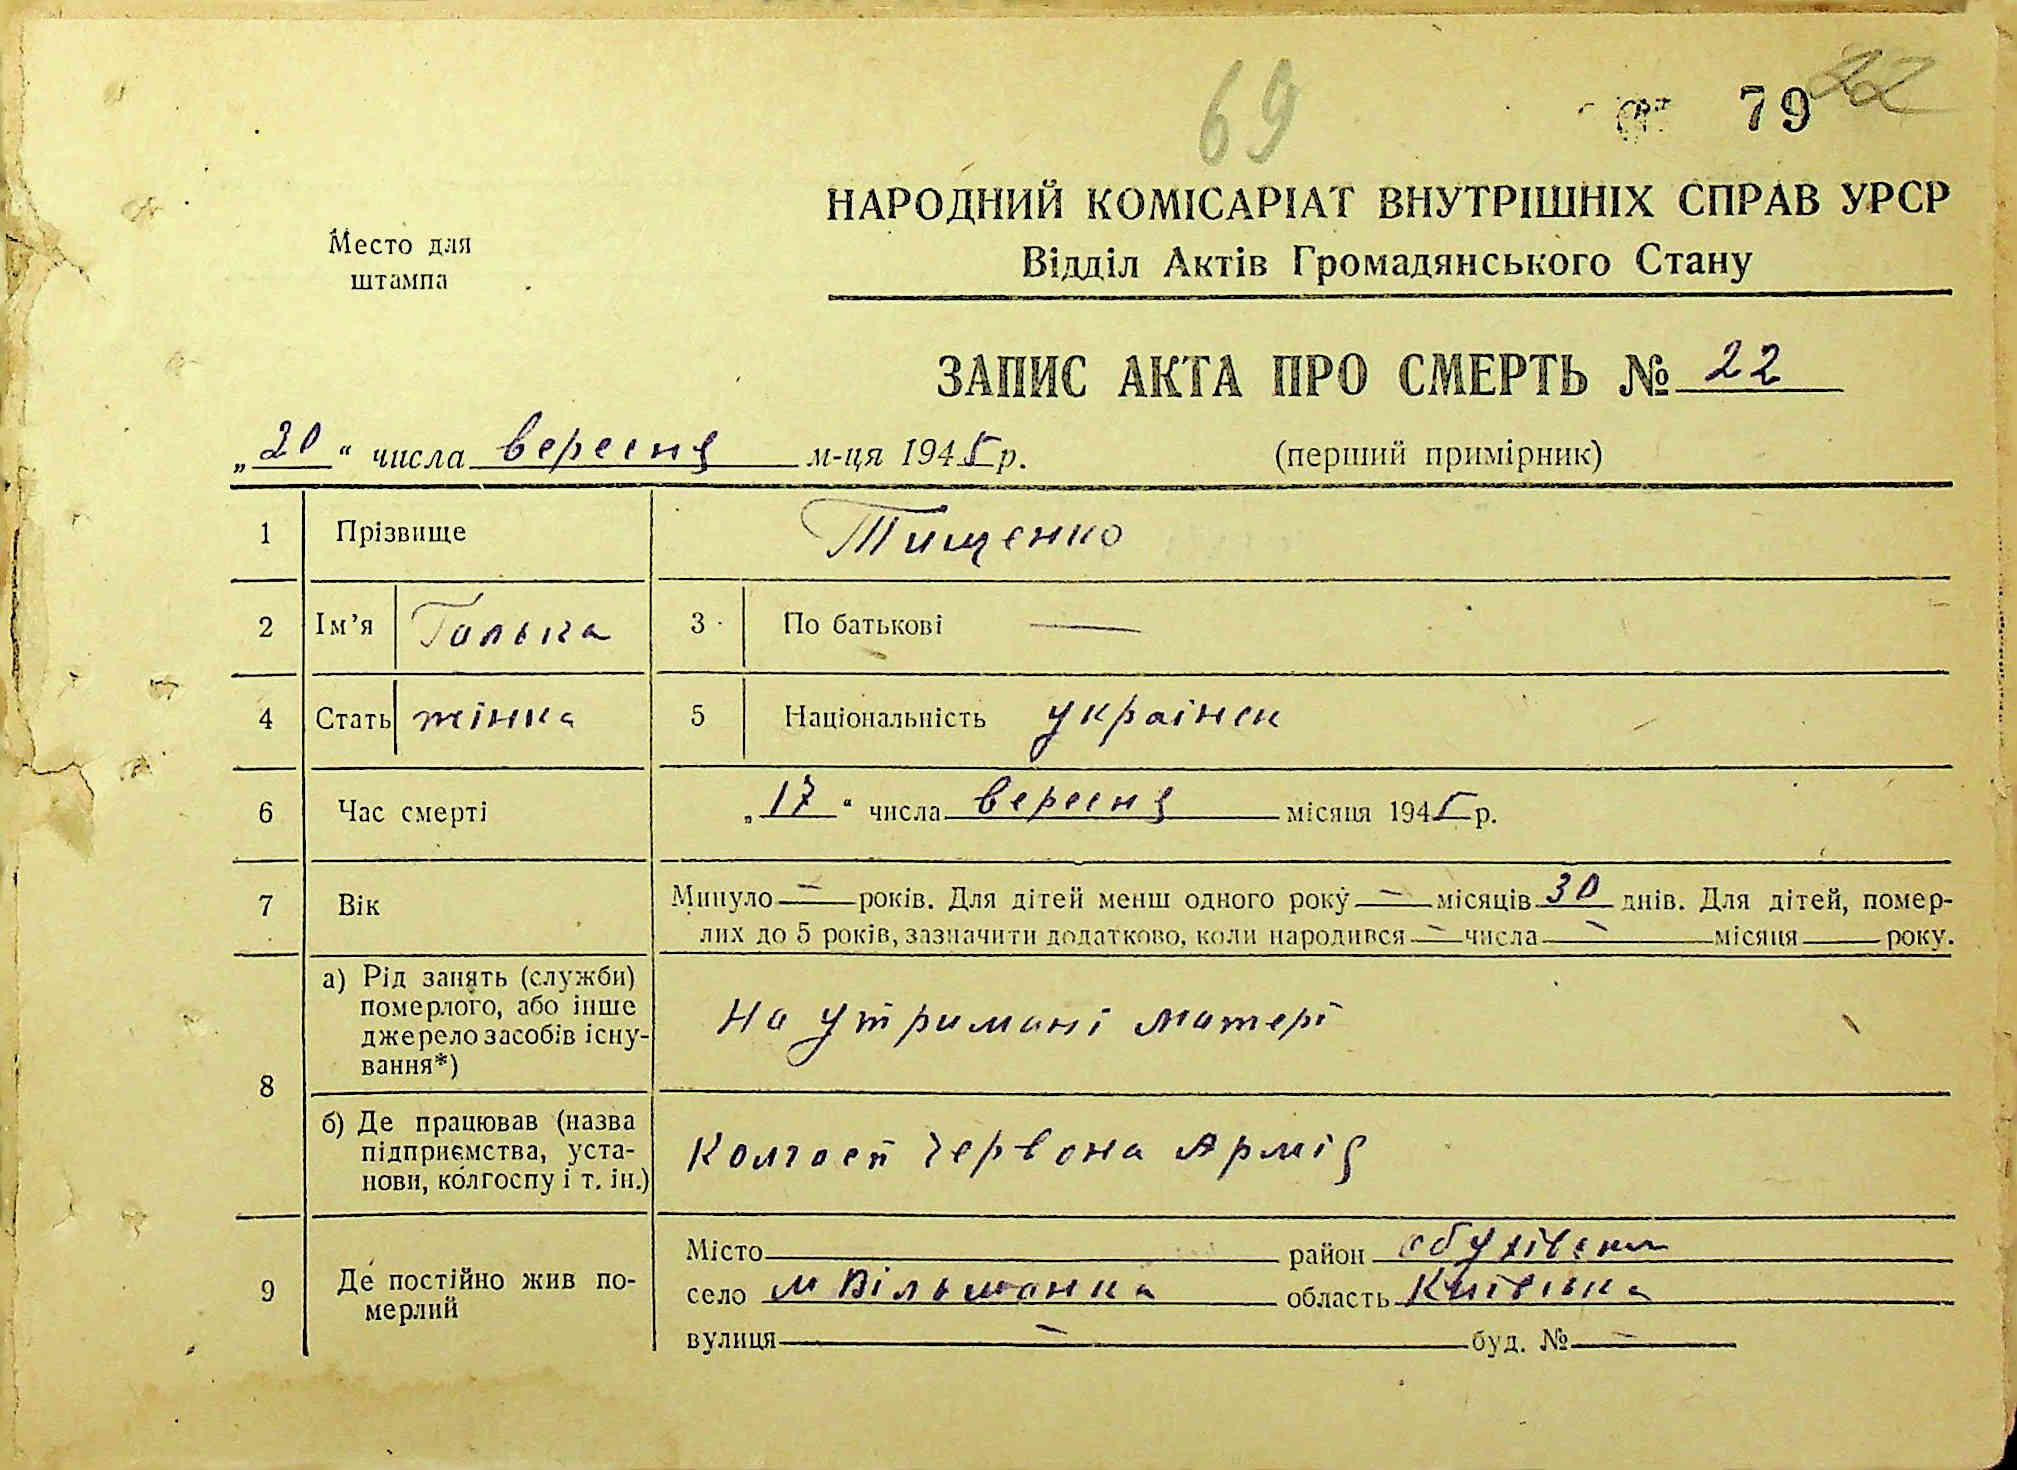 69
79 22
НАРОДНИЙ КОМІСАРІАТ ВНУТРІШНІХ СПРАВ УРСР
Відділ Актів Громадянського Стану
Место для
штампа
ЗАПИС АКТА ПРО СМЕРТЬ № 22
„20“ числа вересня м-ця 1945 р. (перший примірник)
1 Прізвище Тищенко
2 Ім’я Галька 3 По батькові —
4 Стать жінка 5 Національність українка
6 Час смерті „17“ числа вересня місяця 1945 р.
7 Вік Минуло — років. Для дітей менш одного року — місяців 30 днів. Для дітей, помер-
лих до 5 років, зазначити додатково, коли народився — числа — місяця року.
8 а) Рід занять (служби)
померлого, або інше
джерело засобів існу-
вання*)
На утримані матері
б) Де працював (назва
підприємства, уста-
нови, колгоспу і т. ін.)
Колгосп Червона Армія
9 Де постійно жив по-
мерлий
Місто район обухівськи
село м Вільшанка область Київська
вулиця — буд. № —